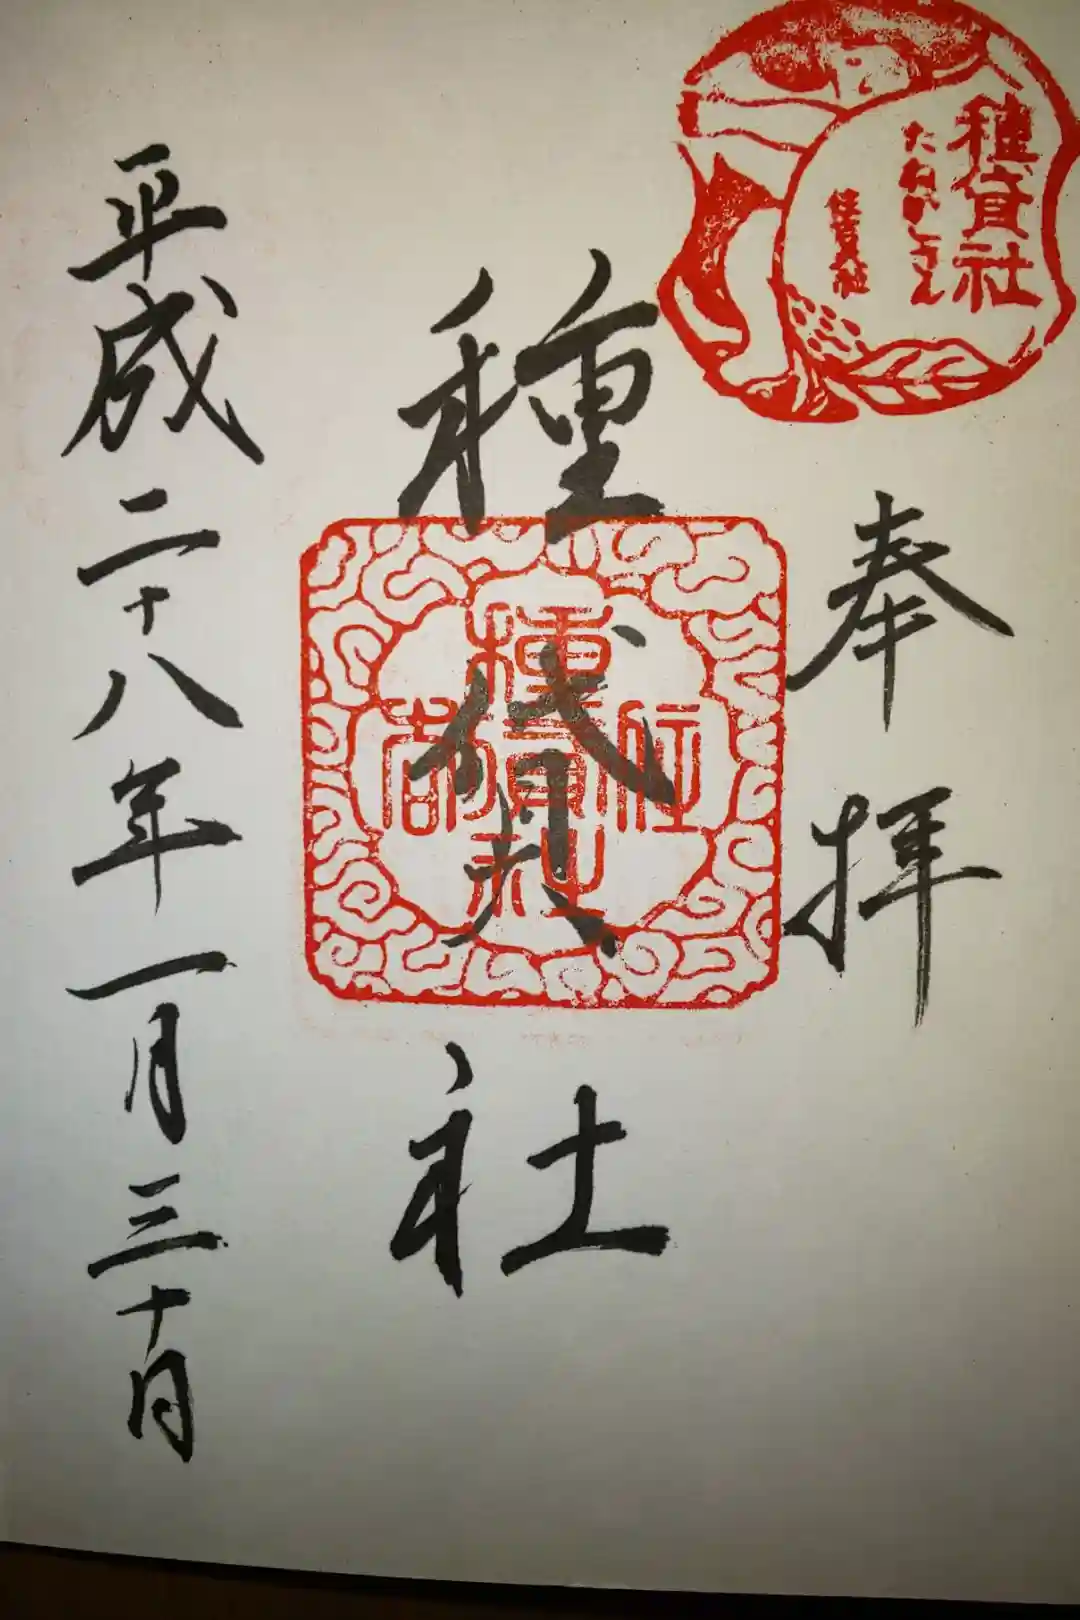 種貸社
たねかしさん
住吉大社
奉拝
種貸社
種貸社
平成二十八年一月三十日